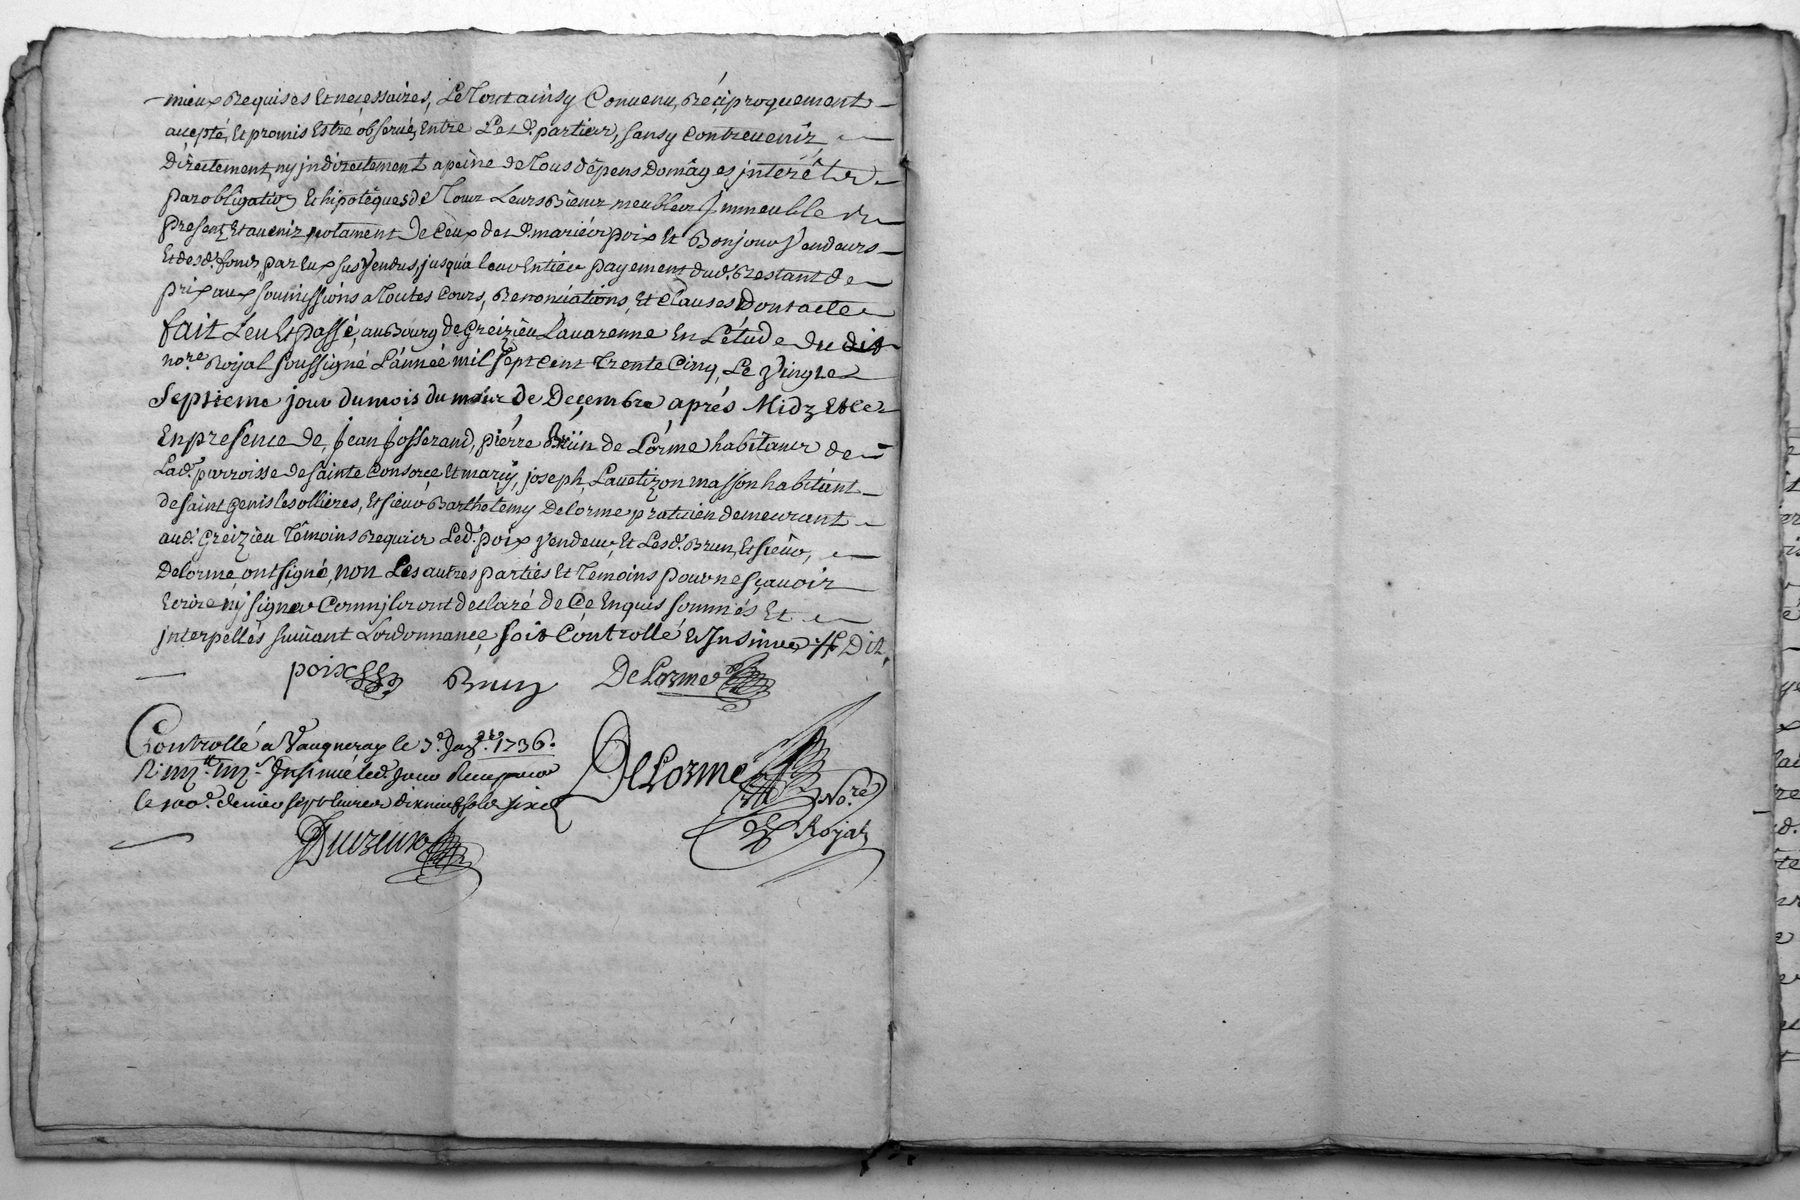 mieux Requises Et necessaires, Le Tout ainsy Convenu, Réciproquement
accepté, Et promis Estre observé, Entre Les d. parties, sans y Contrevenir
Directement, ny indirectement a peine de Tous dépens Domâges intérêts
par obligation Et hipotéques de Tous Leurs Biens meubles Immeubles
Present, Et avenir, notament De Ceux des d. mariés poix Et Bonjour Vendeurs
Et des d. fonds par Eux sus Vendus, jusqu'a leur Entier payement dud. Restant de
prix aux soumissions a Toutes Cours, Renonciations, Et Clauses Dont acte
fait Leu Et passé, au Bourg de Greizieu Lavarenne En L'étude du dit
no.re Royal soussigné L'année mil sept Cent Trente Cinq, Le Vingt
Septieme jour du mois du De Decembre, aprés Midz Et ce
En presence de, Jean Josserand, pierre Brün de Lorme habitans de
Lad. parroisse de sainte Consorce Et marcy, joseph, Lavetizon masson habitant
de saint genis les ollieres, Et sieur Barthelemy Delorme praticien demeurant
aud. Greizieu Témoins Requis Led. poix Vendeur, Et Les d. Brun, Et sieur,
Delorme, ont signé, non Les autres parties Et Temoins pour ne sçavoir
Ecrire ny signer Comm'ils ont declaré de Ce Enquis sommés Et
interpellés suivant Lordonnance, soit Controllé Et Insinué Dit,
poix Brun DeLorme
Controllé a Vaugneray le 3.e 1736.
Insinué led. jour
le 100.e denier sept livres dixneuf sols
DeLorme No.re
Royal